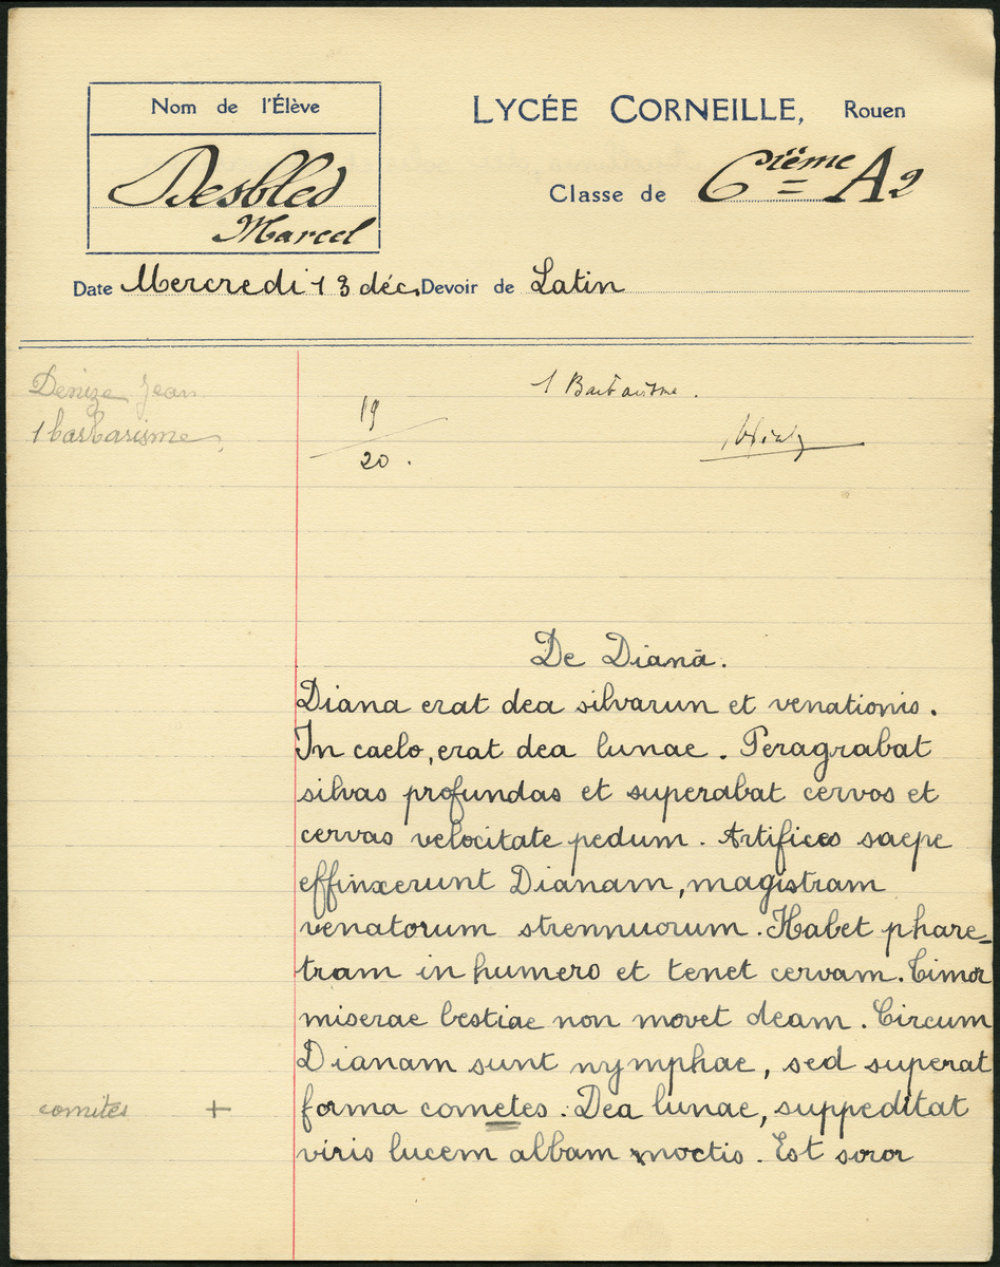 Nom de l'Élève
LYCÉE CORNEILLE, Rouen
Desbled
Marcel
Classe de 6ième A2
Date Mercredi 13 déc. Devoir de Latin
Denize Jean
1 barbarisme
19
20.
1 Barbarisme.
De Dianā.
Diana erat dea silvarun et venationis.
In caelo, erat dea lunae. Peragrabat
silvas profundas et superabat cervos et
cervas velocitate pedum. Artifices saepe
effinxerunt Dianam, magistram
venatorum strennuorum. Habet phare-
tram in humero et tenet cervam. Timor
miserae bestiae non movet deam. Circum
Dianam sunt nymphae, sed superat
comites +
forma cometes. Dea lunae, suppeditat
viris lucem albam noctis. Est soror